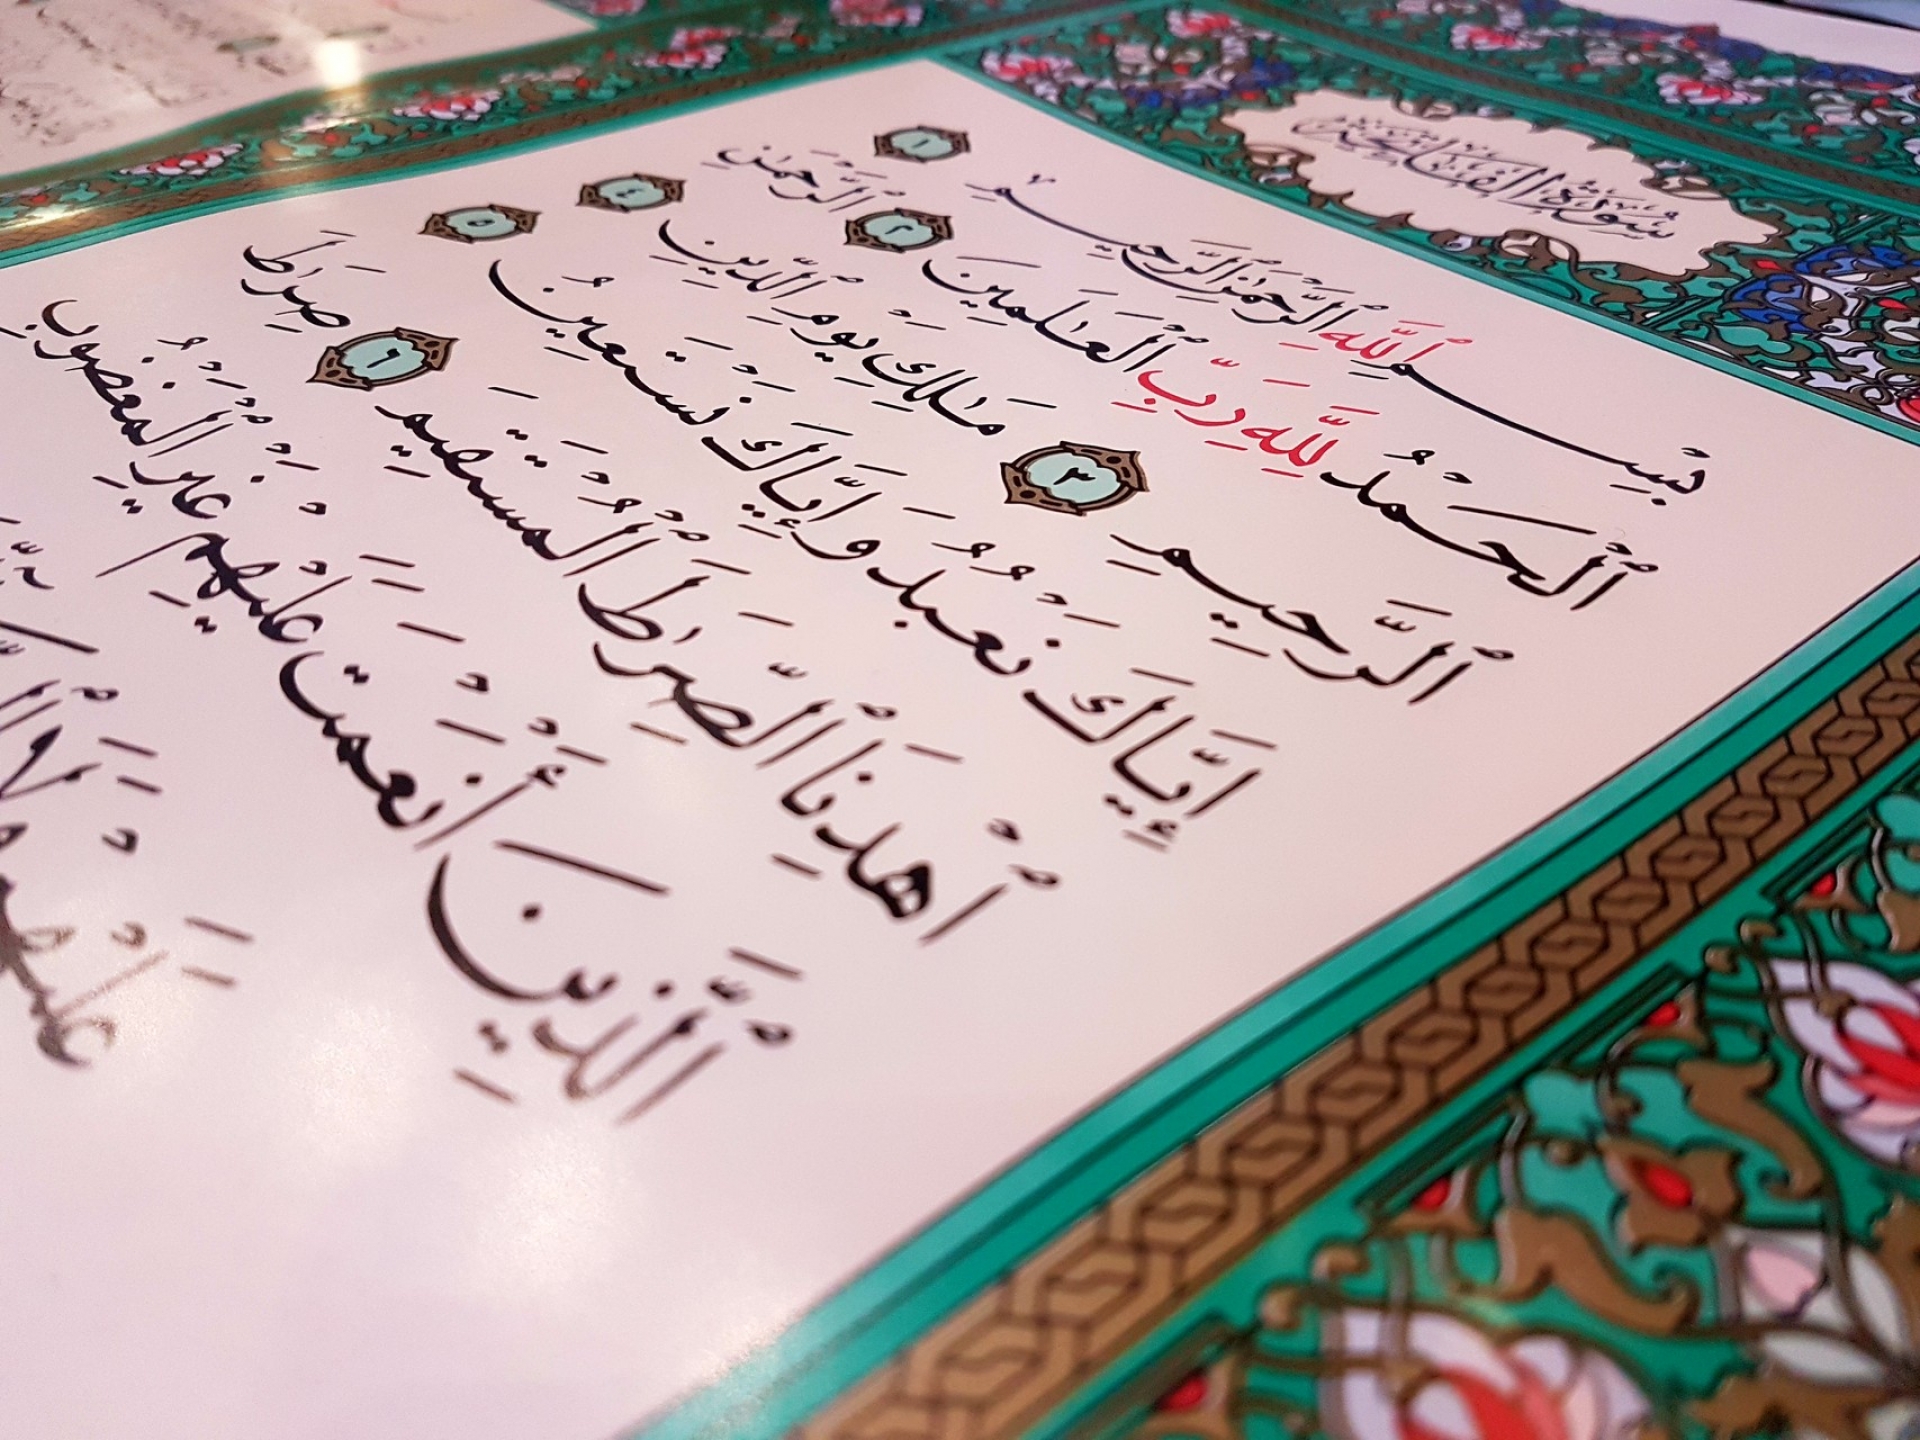 سُورَةُ الْفَاتِحَةِ
بِسْمِ ٱللَّهِ ٱلرَّحْمَٰنِ ٱلرَّحِيمِ ١
ٱلْحَمْدُ لِلَّهِ رَبِّ ٱلْعَٰلَمِينَ ٢ ٱلرَّحْمَٰنِ
ٱلرَّحِيمِ ٣ مَٰلِكِ يَوْمِ ٱلدِّينِ ٤
إِيَّاكَ نَعْبُدُ وَإِيَّاكَ نَسْتَعِينُ ٥
ٱهْدِنَا ٱلصِّرَٰطَ ٱلْمُسْتَقِيمَ ٦ صِرَٰطَ
ٱلَّذِينَ أَنْعَمْتَ عَلَيْهِمْ غَيْرِ ٱلْمَغْضُوبِ
عَلَيْهِمْ وَلَا